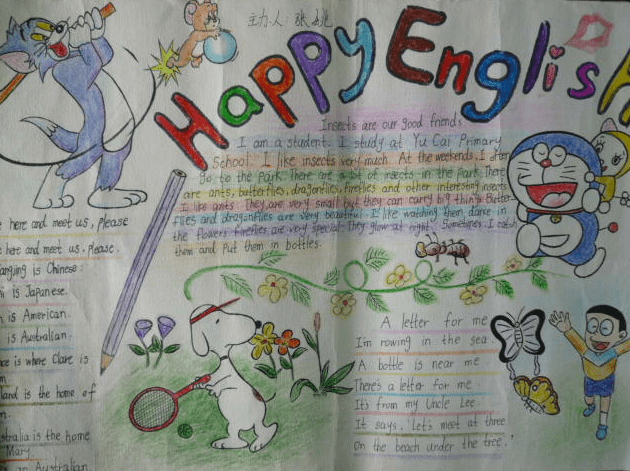 主办人：张姚
Happy English
Insects are our good friends
I am a student. I study at Yu Cai Primary
School. I like insects very much. At the weekends, I often
go to the park. There are a lot of insects in the park. There
are ants, butterflies, dragonflies, fireflies and other interesting insects
I like ants. They are very small but they can carry big things. Butter-
flies and dragonflies are very beautiful. I like watching them dance in
the flowers. fireflies are very special. They glow at night. Sometimes I catch
them and put them in bottles.
here and meet us, please
here and meet us, please.
is Chinese.
is Japanese.
is American.
is Australian.
is where Clare is
land is the home of
stralia is the home
Mary.
an Australian.
A letter for me
I'm rowing in the sea.
A bottle is near me
There's a letter for me.
It's from my Uncle Lee.
It says, Let's meet at three
On the beach under the tree.'